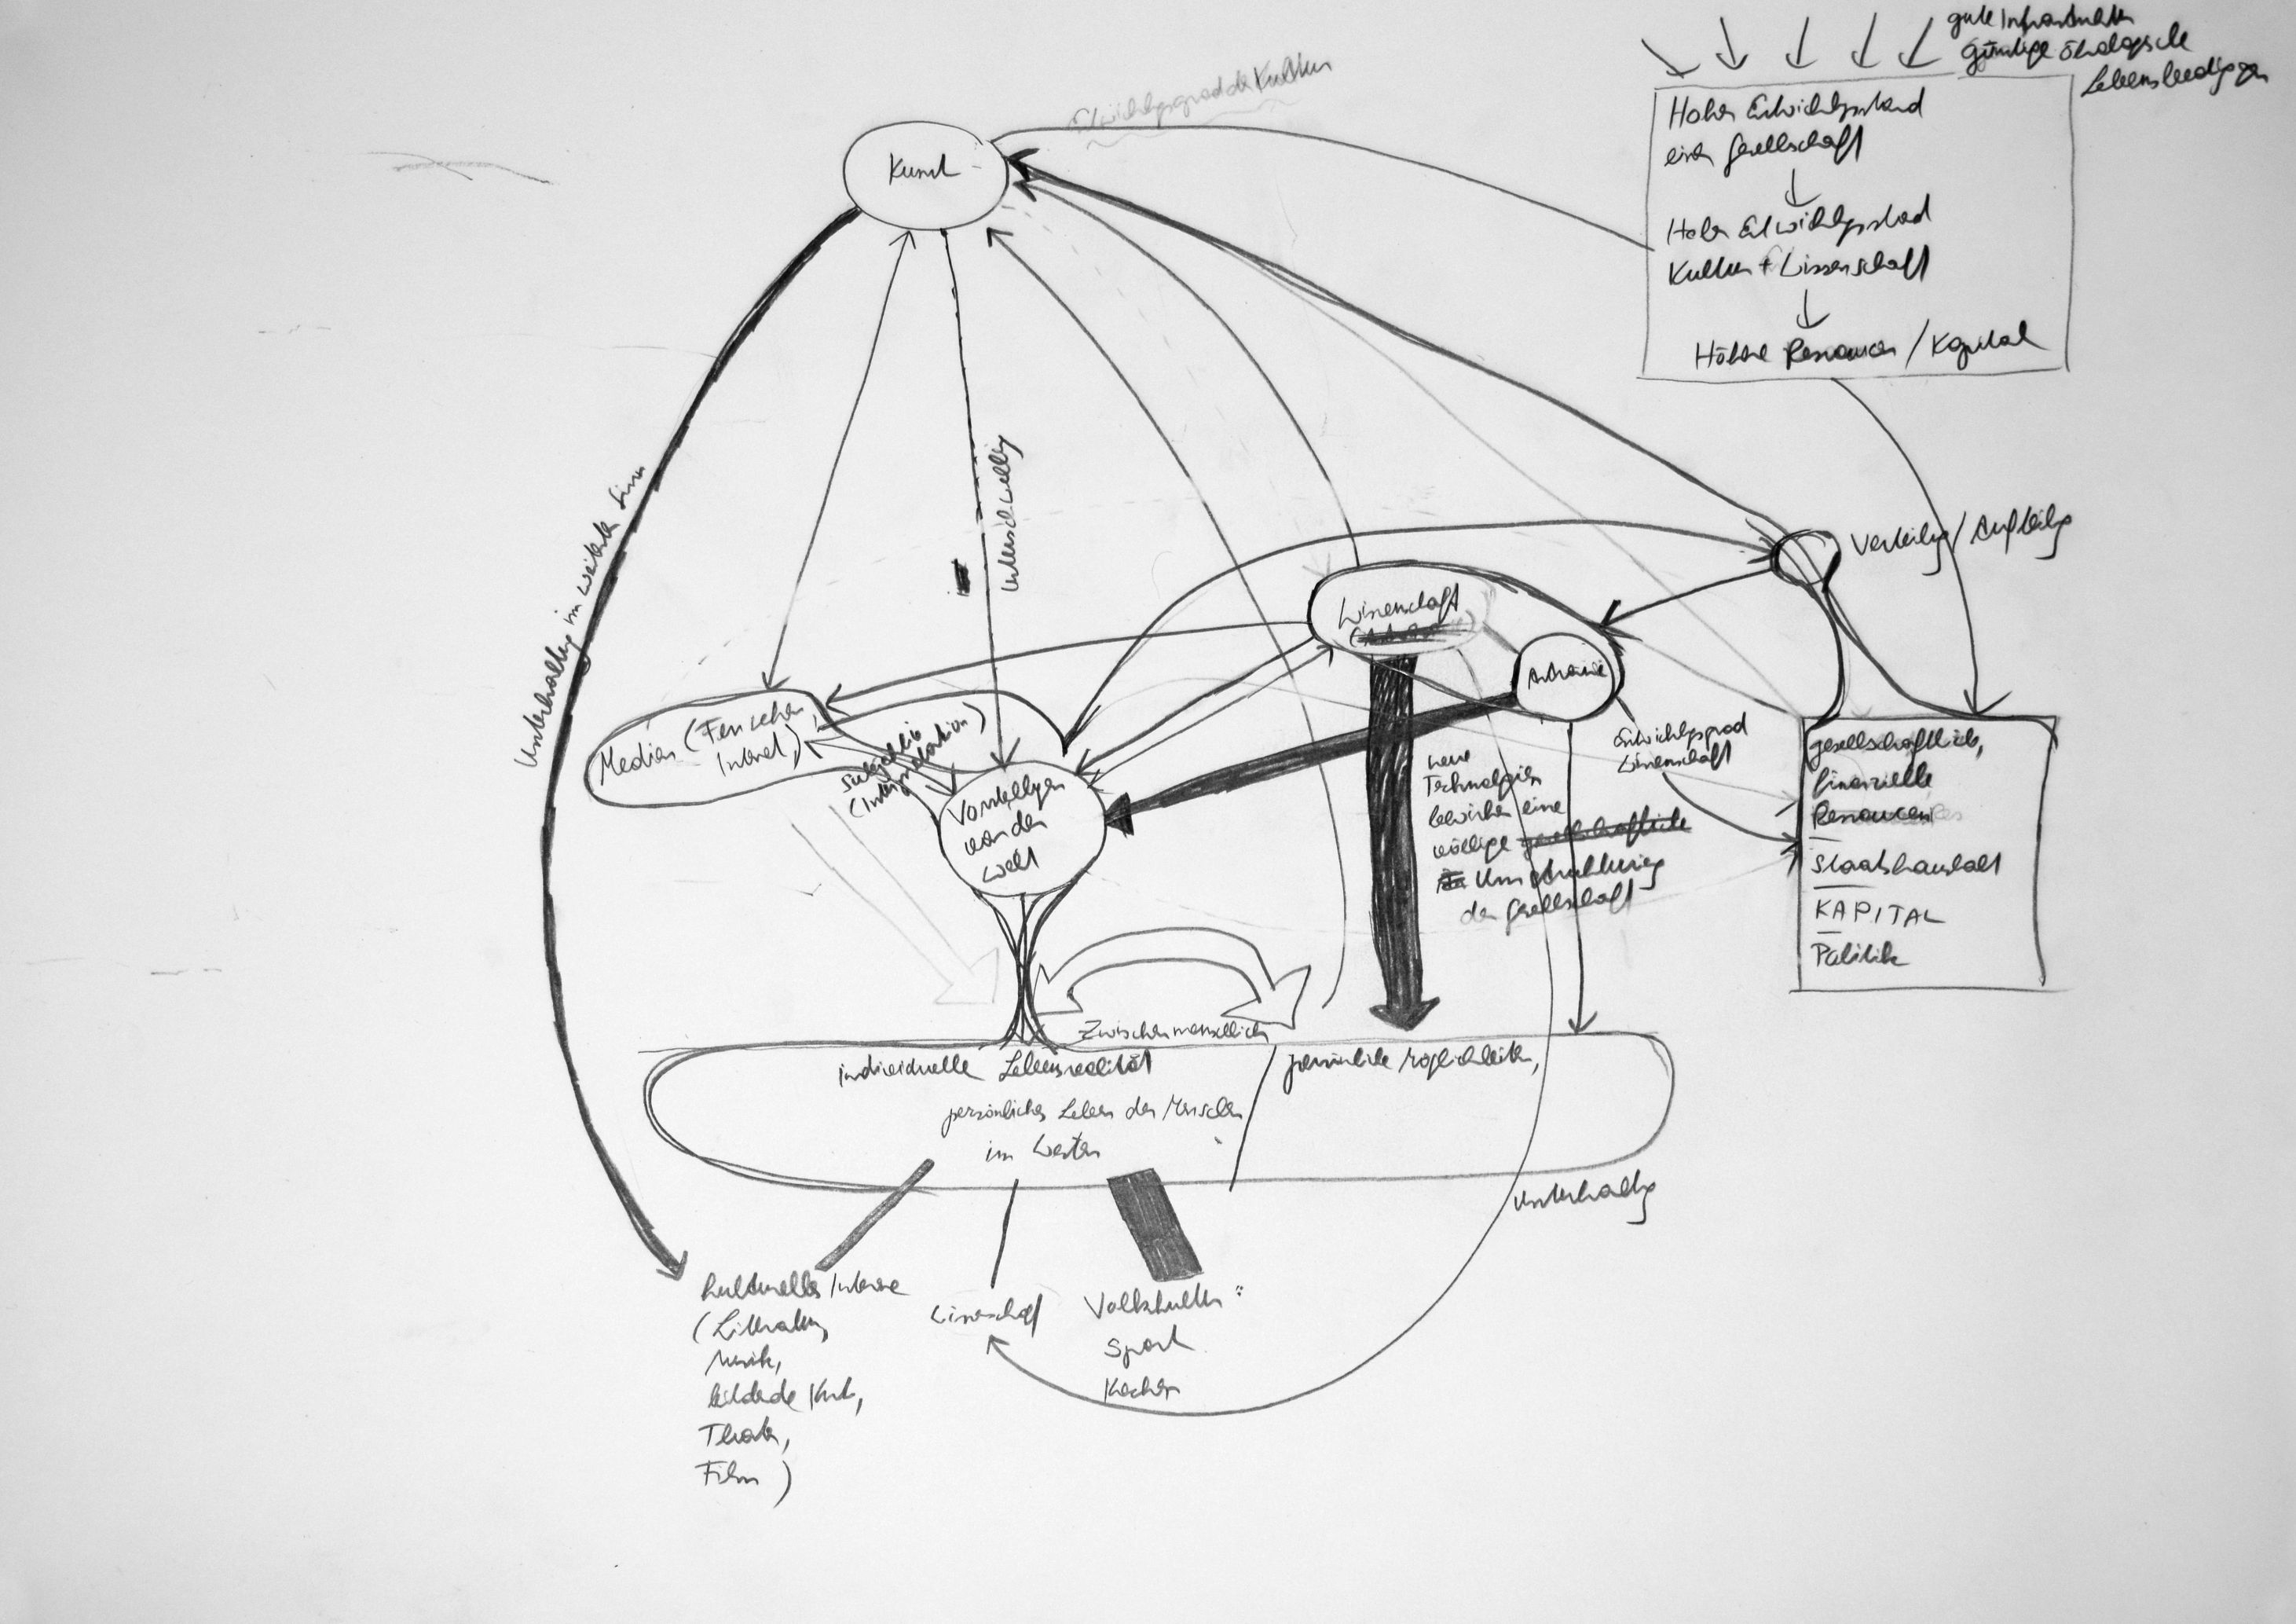 gute Infrastruktur
Günstige ökologische
Lebensbediggen
Entwicklungsgrad der Kultur
Hoher Entwicklungsstand
einer Gesellschaft
Hoher Entwicklungsstand
Kultur + Wissenschaft
Höhere Ressourcen / Kapital
Kunst
Unterhaltung im weitesten Sinn
Unterschwellig
Verteilung / Aufteilung
Wissenschaft
Astronomie
Medien (Fernsehen,
Internet,)
Subjektiv
(Interpretation)
Vorstellungen
von der
Welt
Entwicklungsgrad
Wissenschaft
neue
Technologien
bewirken eine
völlige gesellschaftliche
Umstrukturierung
der Gesellschaft
gesellschaftlich,
finanzielle
Ressourcen
Staatshaushalt
KAPITAL
Politik
Zwischenmenschlich
individuelle Lebensrealität
persönliche Möglichkeiten,
persönliches Leben der Menschen
im Westen
Unterhaltung
kulturelles Interesse
(Literatur,
Musik,
bildende Kunst,
Theater,
Film)
Wissenschaft
Volkskultur:
Sport
Kochen